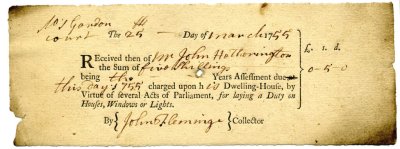 No 5 Gordon
Court The 25 — Day of March 1755
£. s. d.
Received then of Mr John Hatherington
the Sum of five Shillings 0-5-0
being this Years Assessment due
this day 1755 charged upon his Dwelling-House, by
Virtue of several Acts of Parliament, for laying a Duty on
Houses, Windows or Lights.
By { John Fleminge } Collector